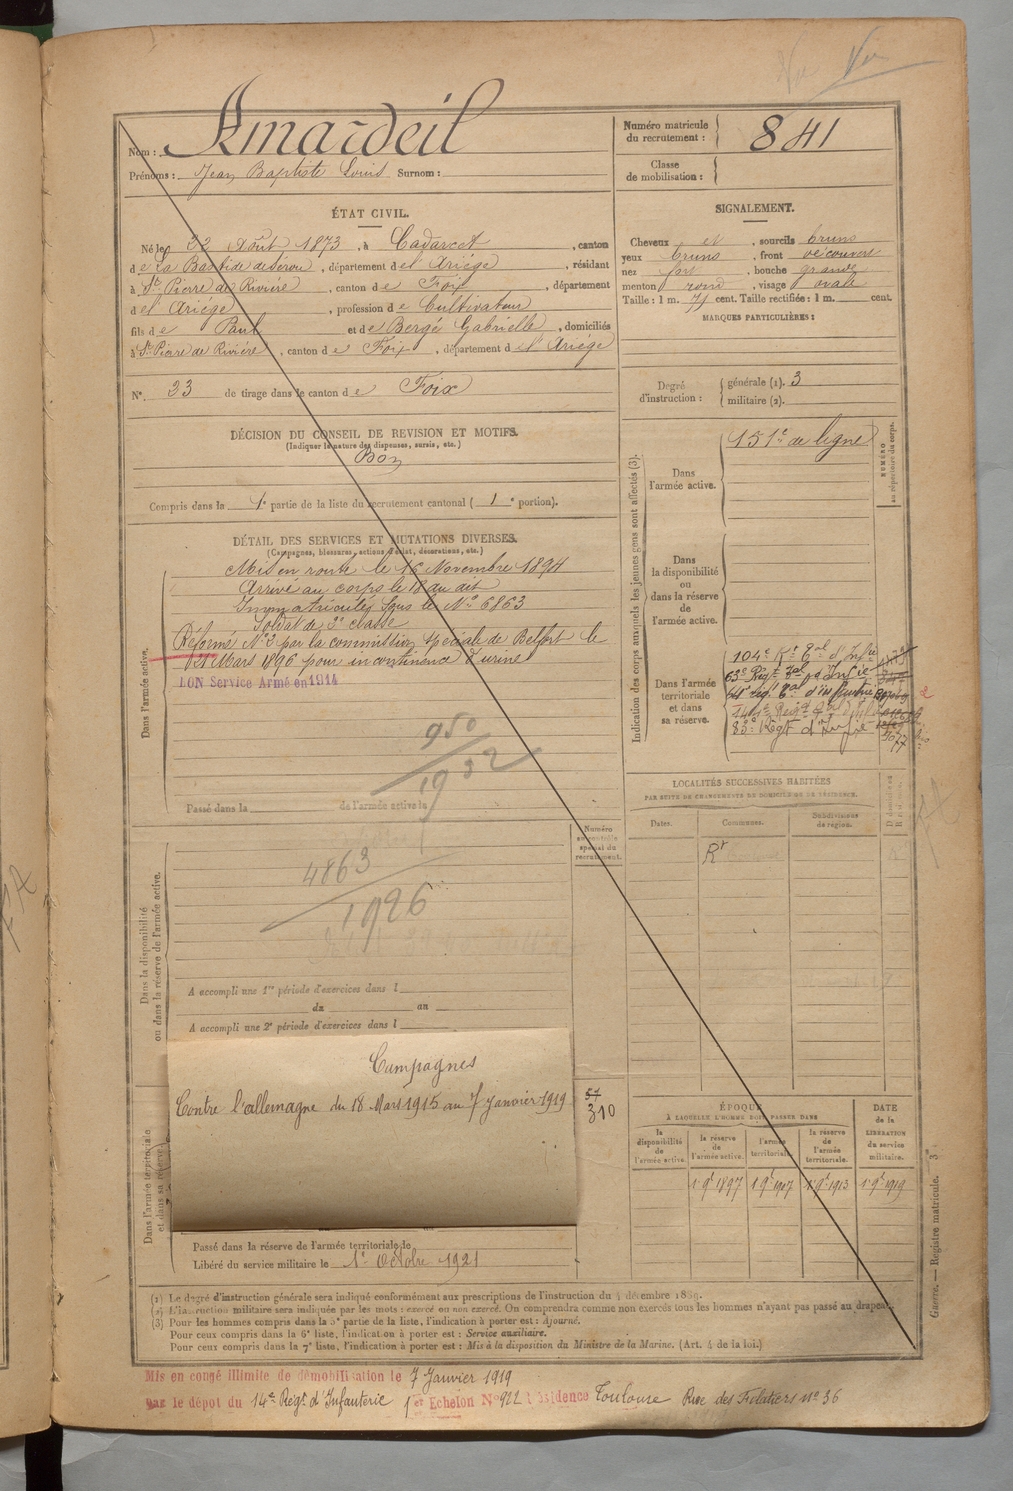 Vu
Nom : Amardeil
Prénoms : Jean Baptiste Louis Surnom :
Numéro matricule du recrutement : 841
Classe de mobilisation :
ÉTAT CIVIL.
Né le 22 Août 1873, à Cadarcet, canton
de La Bastide de Sérou, département de l'Ariège, résidant
à St Pierre de Rivière, canton de Foix, département
de l'Ariège, profession de Cultivateur
fils de Paul et de Bergé Gabrielle, domiciliés
à St Pierre de Rivière, canton de Foix, département de l'Ariège
N° 33 de tirage dans le canton de Foix
SIGNALEMENT.
Cheveux et, sourcils bruns
yeux bruns, front découvert
nez fort, bouche grande
menton rond, visage ovale
Taille : 1 m. 71 cent. Taille rectifiée : 1 m. cent.
MARQUES PARTICULIÈRES :
Degré d'instruction : générale (1). 3
militaire (2).
DÉCISION DU CONSEIL DE REVISION ET MOTIFS.
(Indiquer la nature des dispenses, sursis, etc.)
Bon
Compris dans la 1e partie de la liste du recrutement cantonal (1e portion).
DÉTAIL DES SERVICES ET MUTATIONS DIVERSES.
(Campagnes, blessures, actions d'éclat, décorations, etc.)
Dans l'armée active.
Mis en route le 16 Novembre 1894
Arrivé au corps le 18 du dit
Immatriculé sous le N° 6863
Soldat de 2e classe
Réformé N° 2 par la commission spéciale de Belfort le
Mars 1896 pour incontinence d'urine
BON Service Armé en 1914
950
1932
Passé dans la de l'armée active le
Dans la disponibilité ou dans la réserve de l'armée active.
4863
1926
A accompli une 1re période d'exercices dans l
du au
A accompli une 2e période d'exercices dans l
Numéro au contrôle spécial du recrutement.
Dans l'armée territoriale et dans sa réserve.
Campagnes
Contre l'allemagne du 18 Mars 1915 au 7 janvier 1919
57
310
Passé dans la réserve de l'armée territoriale le
Libéré du service militaire le 1er Octobre 1921
Indication des corps auxquels les jeunes gens sont affectés (3).
NUMÉRO au répertoire du corps.
Dans l'armée active.
151e de ligne
Dans la disponibilité ou dans la réserve de l'armée active.
Dans l'armée territoriale et dans sa réserve.
104e Rt Tal d'Infie
63e Régt Tal d'Infie
64e rég. Tal d'infanterie
83e Régt d'Infie
LOCALITÉS SUCCESSIVES HABITÉES
PAR SUITE DE CHANGEMENTS DE DOMICILE OU DE RÉSIDENCE.
Dates. Communes. Subdivisions de région. D domicile ou R résidence.
Rt
ÉPOQUE
À LAQUELLE L'HOMME DOIT PASSER DANS
la disponibilité de l'armée active. la réserve de l'armée active. l'armée territoriale. la réserve de l'armée territoriale.
DATE de la LIBÉRATION du service militaire.
1 9e 1897 1 9e 1907 1 9e 1913 1 9e 1919
(1) Le degré d'instruction générale sera indiqué conformément aux prescriptions de l'instruction du 4 décembre 1889.
(2) L'instruction militaire sera indiquée par les mots : exercé ou non exercé. On comprendra comme non exercés tous les hommes n'ayant pas passé au drapeau.
(3) Pour les hommes compris dans la 5e partie de la liste, l'indication à porter est : Ajourné.
Pour ceux compris dans la 6e liste, l'indication à porter est : Service auxiliaire.
Pour ceux compris dans la 7e liste, l'indication à porter est : Mis à la disposition du Ministre de la Marine. (Art. 4 de la loi.)
Guerre. — Registre matricule. 3e
Mis en congé illimité de démobilisation le 7 Janvier 1919
Par le dépôt du 14e Régt d'Infanterie 1er Echelon N° 922 Résidence Toulouse Rue des Filatiers N° 36